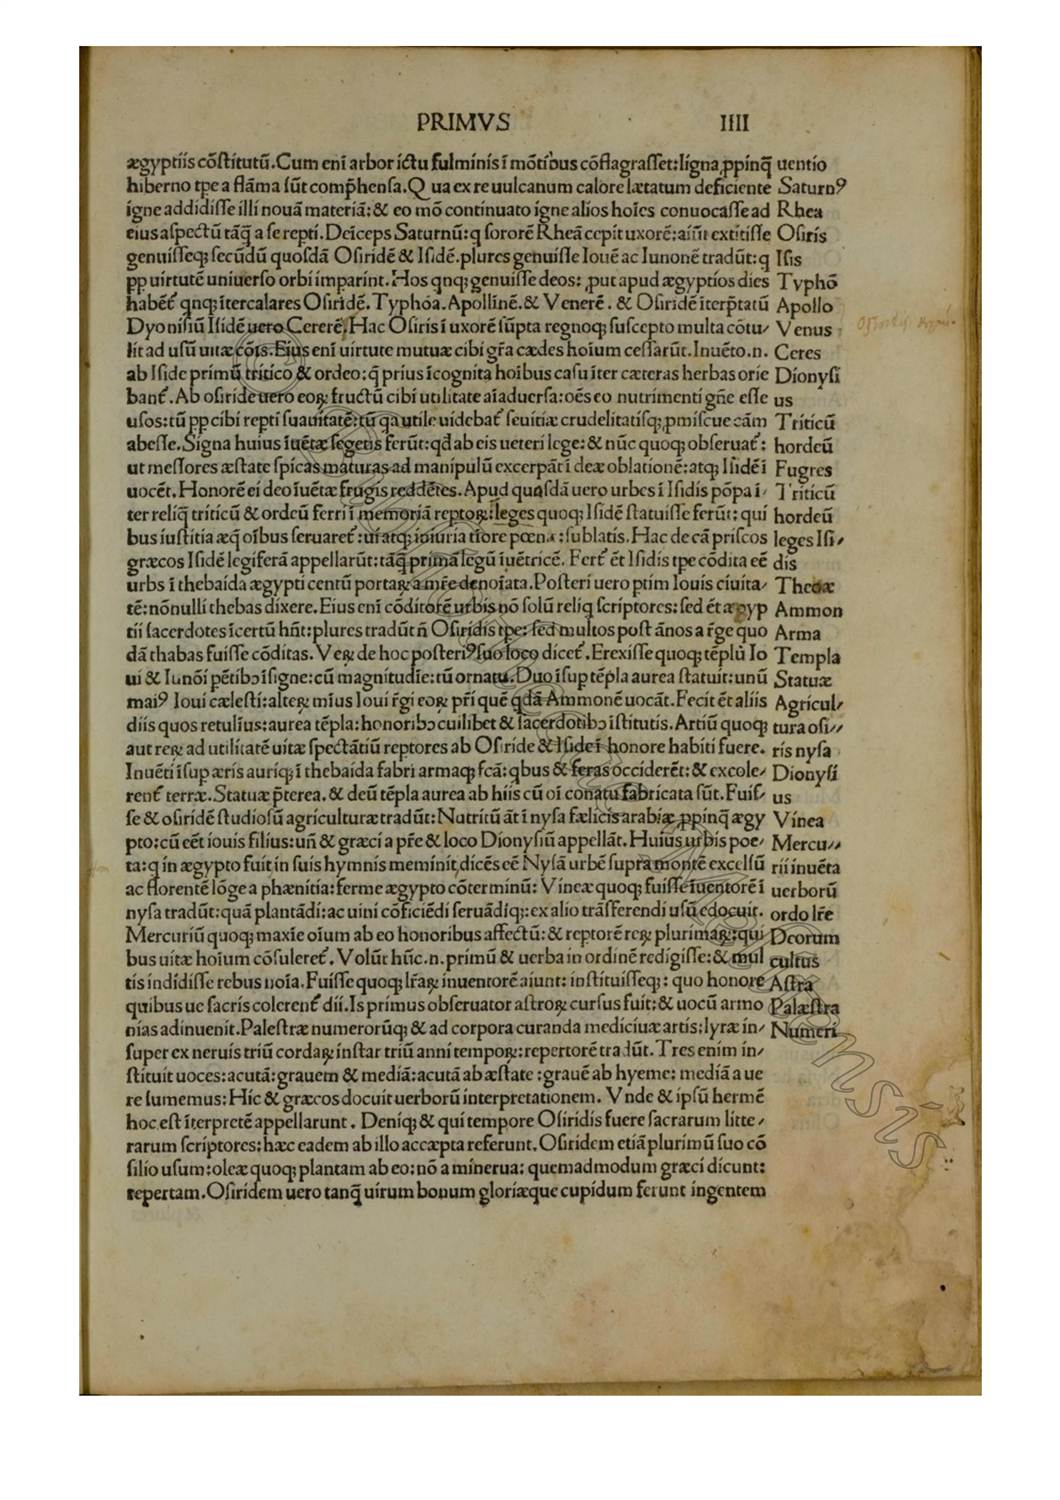 PRIMVS IIII
ægyptiis cōſtitutū.Cum enī arbor ictu fulminis ī mōtibus cōflagraſſet:ligna ꝓpinq̄ uentio
hiberno tꝑe a flāma ſūt compħenſa.Q ua ex re uulcanum calore lætatum deficiente Saturnꝰ
igne addidiſſe illi nouā materiā:& eo mō continuato igne alios hoīes conuocaſſe ad Rhea
eius aſpectū tāq̄ a ſe repti.Deīceps Saturnū:q ſororē Rheā cepit uxorē:aiūt extitiſſe Oſiris
genuiſſeqꝫ ſecūdū quoſdā Oſiridē & Iſidē.plures genuiſſe Iouē ac Iunonē tradūt:q Iſis
ꝓp uirtutē uniuerſo orbi imparint.Hos qnqꝫ genuiſſe deos: ꝓut apud ægyptios dies Typhō
habēt̃ qnqꝫ ītercalares Oſiridē.Typhōa.Apollinē.& Venerē. & Oſiridē īterp̄tatū Apollo
Dyoniſiū Iſidē uero Cererē.Hac Oſiris ī uxorē ſūpta regnoqꝫ ſuſcepto multa cōtu⸗ Venus
lit ad uſū uitæ cōīs.Eius enī uirtute mutuæ cibi gr̄a cædes hoīum ceſſarūt.Inuēto.n. Ceres
ab Iſide primū tritico & ordeo:q̄ prius īcognita hoībus caſu īter cæteras herbas orie Dionyſi
bant̃.Ab oſiride uero eoꝝ fructū cibi utilitate aīaduerſa:oēs eo nutrimenti gñe eſſe us
uſos:tū ꝓp cibi repti ſuauitatē:tū qa utile uidebat̃ ſeuitiæ crudelitatiſqꝫ ꝓmiſcue cām Triticū
abeſſe.Signa huius īuētæ ſegetis ferūt:qd̄ ab eis ueteri lege:& nūc quoqꝫ obſeruat̃: hordeū
ut meſſores æſtate ſpicas maturas ad manipulū excerpāt ī deæ oblationē:atqꝫ Iſidē ī Fugres
uocēt.Honorē ei deo īuētæ frugis reddētes.Apud quoſdā uero urbes ī Iſidis pōpa ī⸗ Triticū
ter reliq̄ triticū & ordeū ferri ī memoriā reptoꝝ:leges quoqꝫ Iſidē ſtatuiſſe ferūt: qui hordeū
bus iuſtitia æq̄ oībus ſeruaret̃:uīatqꝫ iniuria tīore pœnæ:ſublatis.Hac de cā priſcos leges Iſi⸗
græcos Iſidē legiferā appellarūt:tāq̄ primā legū īuētricē. Fert̃ ēt Iſidis tꝑe cōdita eē dis
urbs ī thebaida ægypti centū portaꝝ a mr̄e denoīata.Poſteri uero ptim Iouis ciuita⸗ Thebæ
tē:nōnulli thebas dixere.Eius enī cōditorē urbis nō ſolū reliq ſcriptores:ſed ēt ægyp Ammon
tii ſacerdotes īcertū hn̄t:plures tradūt n̄ Oſiridis tꝑe: ſed multos poſt ānos a r̄ge quo Arma
dā thabas fuiſſe cōditas.Veꝝ de hoc poſteriꝰ ſuo loco dicet̃.Erexiſſe quoqꝫ tēplū Io Templa
ui & Iunōi pētibꝫ īſigne:cū magnitudīe:tū ornatu.Duo īſup tēpla aurea ſtatuit:unū Statuæ
maiꝰ Ioui cæleſti:alteꝝ mīus Ioui r̄gi eoꝝ pr̄i quē qdā Ammonē uocāt.Fecit ēt aliis Agricul⸗
diis quos retulius:aurea tēpla:honoribꝫ cuilibet & ſacerdotibꝫ īſtitutis.Artiū quoqꝫ tura oſi⸗
aut reꝝ ad utilitatē uitæ ſpectātiū reptores ab Oſiride & Iſide ī honore habiti fuere. ris nyſa
Inuēti īſup æris auriqꝫ ī thebaida fabri armaqꝫ fcā:qbus & feras occiderēt:& excole⸗ Dionyſi
rent̃ terræ.Statuæ p̄terea.& deū tēpla aurea ab hiis cū oī conatu fabricata ſūt.Fuiſ⸗ us
ſe & oſiridē ſtudioſū agriculturæ tradūt:Nutritū āt ī nyſa fælicis arabiæ ꝓpinq̄ ægy Vinea
pto:cū eēt iouis filius:uñ & græci a pr̄e & loco Dionyſiū appellāt.Huius urbis poe⸗ Mercu⸗
ta:q in ægypto fuit in ſuis hymnis meminit dicēs eē Nyſā urbē ſupra montē excelſū rii inuēta
ac florentē lōge a phænitia:ferme ægypto cōterminū: Vineæ quoqꝫ fuiſſe īuentorē ī uerborū
nyſa tradūt:quā plantādi:ac uini cōficiēdi ſeruādiqꝫ:ex alio trāſferendi uſū edocuit. ordo lr̄e
Mercuriū quoqꝫ maxīe oīum ab eo honoribus affectū:& reptorē reꝝ plurimaꝝ:qui Deorum
bus uitæ hoīum cōſuleret̃.Volūt hūc.n.primū & uerba in ordinē redigiſſe:& mul cultus
tis indidiſſe rebus noīa.Fuiſſe quoqꝫ lr̄aꝝ inuentorē aiunt: inſtituiſſeqꝫ: quo honore Aſtra
quibus ue ſacris colerent̃ dii.Is primus obſeruator aſtroꝝ curſus fuit:& uocū armo Palæſtra
nias adinuenit.Paleſtræ numerorūqꝫ & ad corpora curanda mediciuæ artis:lyræ in⸗ Numeri
ſuper ex neruis triū cordaꝝ inſtar triū anni tempoꝝ:repertorē tradūt. Tres enim in⸗
ſtituit uoces:acutā:grauem & mediā:acutā ab æſtate :grauē ab hyeme: mediā a ue
re ſumemus: Hic & græcos docuit uerborū interpretationem. Vnde & ipſū hermē
hoc eſt īterpretē appellarunt. Deniqꝫ & qui tempore Oſiridis fuere ſacrarum litte⸗
rarum ſcriptores: hæc eadem ab illo accæpta referunt. Oſiridem etiā plurimū ſuo cō
ſilio uſum:oleæ quoqꝫ plantam ab eo: nō a minerua: quemadmodum græci dicunt:
repertam.Oſiridem uero tanq̄ uirum bonum gloriæque cupidum ferunt ingentem